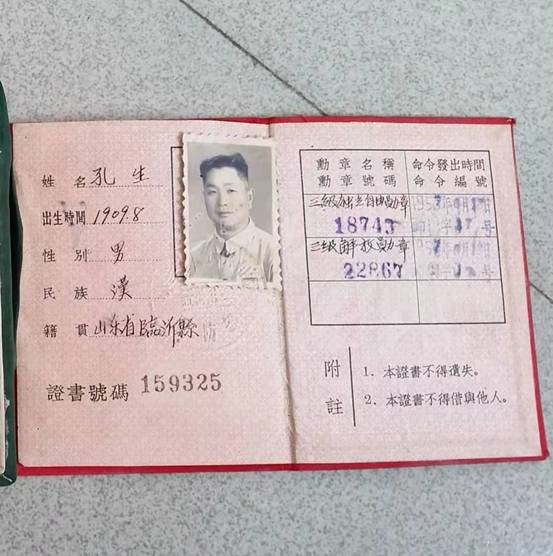 姓 名 孔 生
出生時間 1909.8
性 別 男
民 族 漢
籍 貫 山东省臨沂縣
證書號碼 159325
勳章名稱 命令發出時間
勳章號碼 命令編號
三級獨立自由勳章
18743 号
三級解放勳章
22867 号
附註
1. 本證書不得遺失。
2. 本證書不得借與他人。